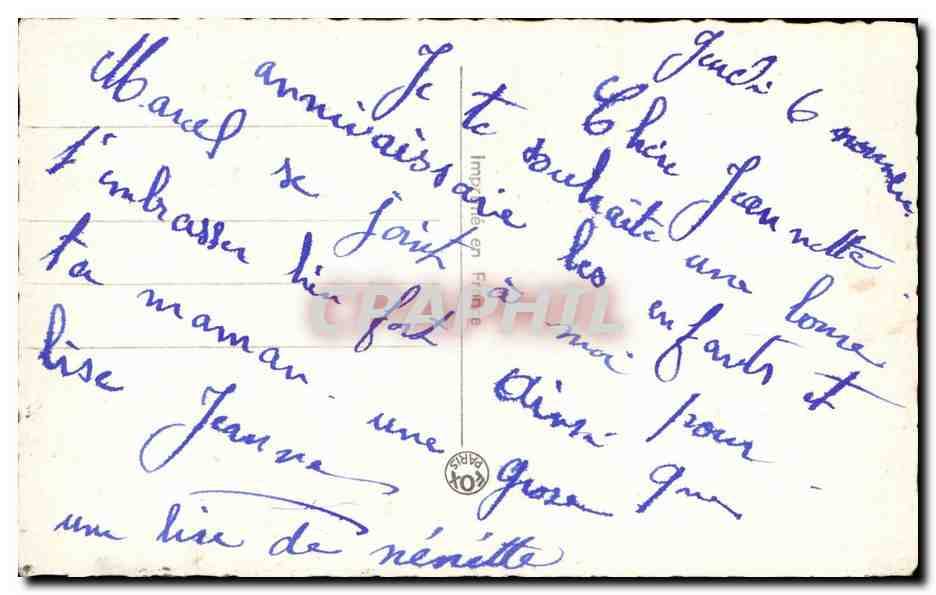 Jeudi 6 novembre
Chère Jeannette
Je te souhaite une bonne
anniverssaire les enfants et
Marcel se joint à moi pour
t'embrasser bien fort ainsi que
ta maman une grosse
bise Jeanne
une bise de nénette
Imprimé en France
FOX
PARIS
CPAPHIL